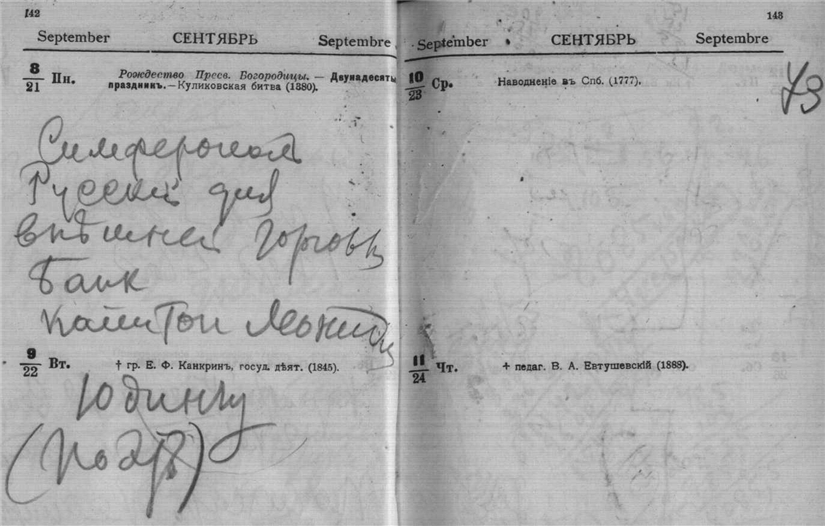 142
September СЕНТЯБРЬ Septembre
8/21 Пн. Рождество Пресв. Богородицы. — Двунадесять
праздникъ.—Куликовская битва (1380).
Симферополь
Русский для
внѣшней торговли
Банк
Капитон
9/22 Вт. † гр. Е. Ф. Канкринъ, госуд. дѣят. (1845).
Юдинъу
143
September СЕНТЯБРЬ Septembre
10/23 Ср. Наводненіе въ Спб. (1777).
73
11/24 Чт. † педаг. В. А. Евтушевскій (1888).